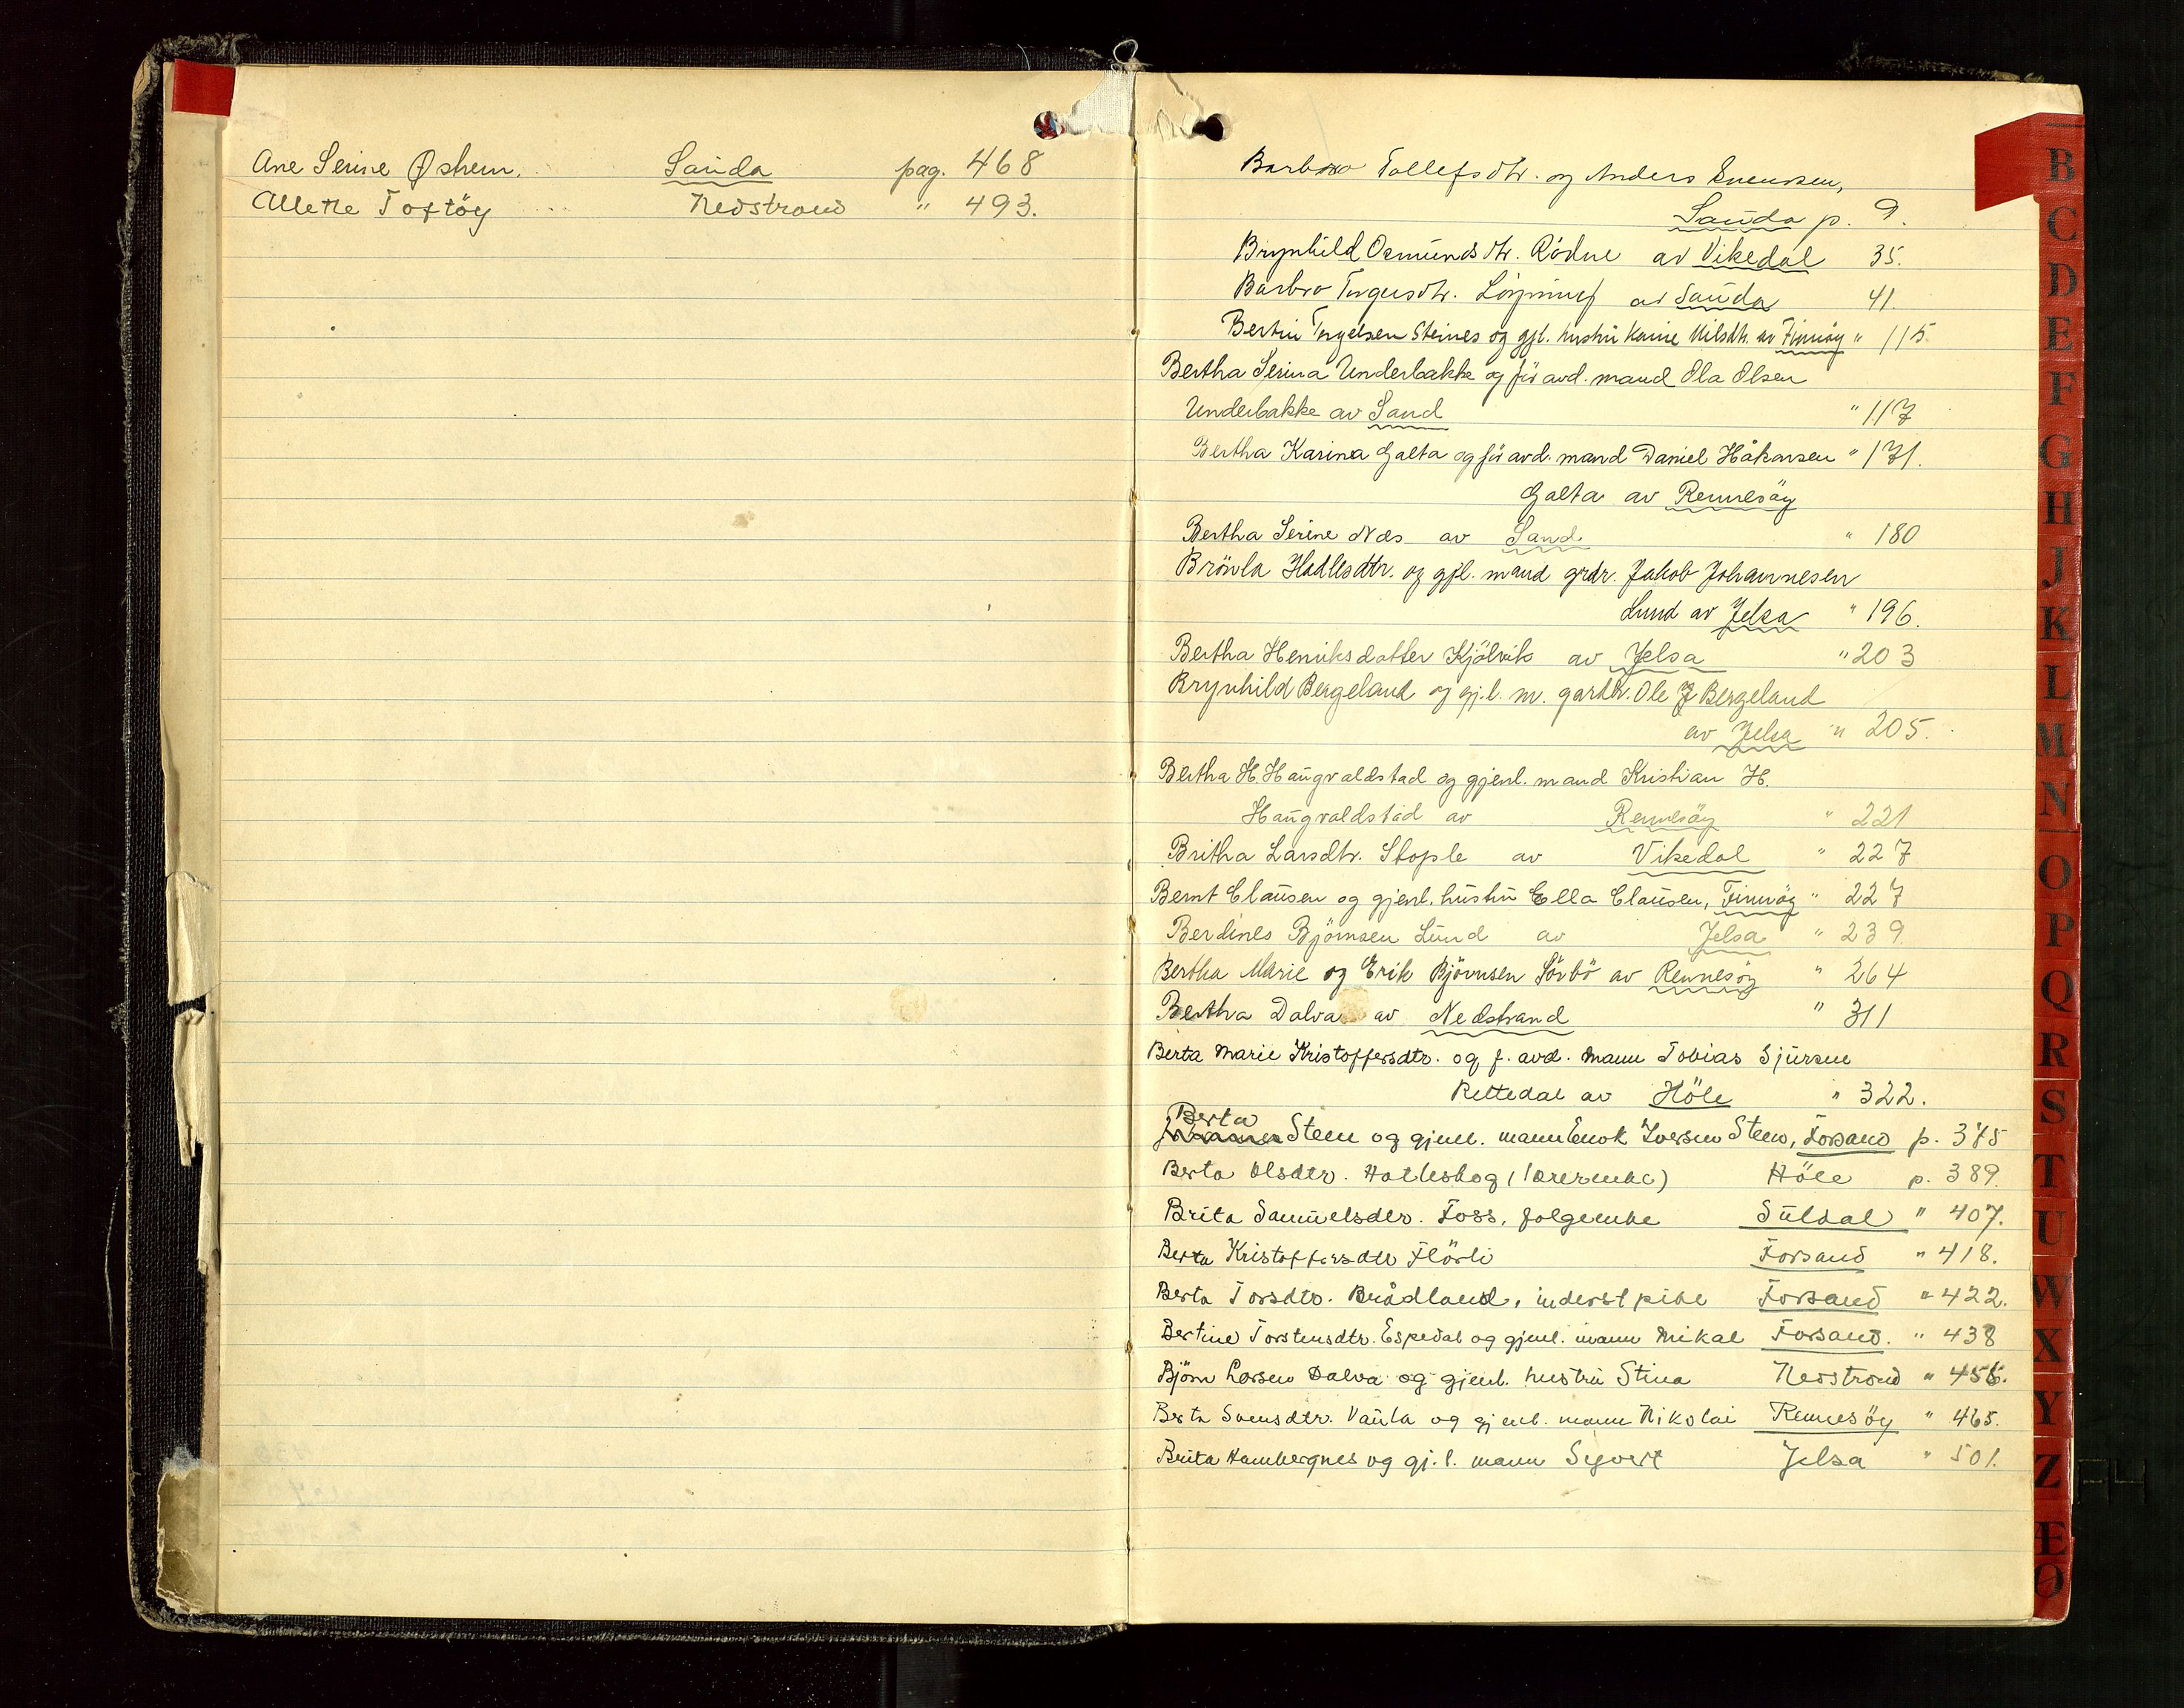 Ane Serine Øshem. Sauda pag. 468
Allette Toftöy Nedstrand " 493.
Barbro Tollefsdtr. og Anders Evensen,
Sauda p. 9.
Brynhild Osmundsdtr. Rödne av Vikedal 35.
Barbro Torgersdtr. av Sauda 41.
Bertin Torgelsen Steines og gjl. hustru Karine Nilsdtr. av Finnöy " 115
Bertha Serina Underbakke og før avd. mand Ola Olsen
Underbakke av Sand " 117
Bertha Karina Galta og før avd. mand Daniel Håkonsen " 171.
Galta av Rennesöy
Bertha Serine Næs av Sand " 180
Brönla Hadlesdtr. og gjl. mand grdr. Jakob Johannesen
Lund av Jelsa " 196.
Bertha Henriksdatter Kjölvik av Jelsa " 203
Brynhild Bergeland og gj.l. m. gardbr. Ole J Bergeland
av Jelsa " 205.
Bertha H. Haugvaldstad og gjenl. mand Kristian H.
Haugvaldstad av Rennesöy " 221
Britha Larsdtr. Stople av Vikedal " 227
Bernt Clausen og gjenl. hustru Ella Clausen, Finnöy " 227
Berdines Björnsen Lund av Jelsa " 239.
Bertha Marie og Erik Björnsen Sörbö av Rennesöy " 264
Bertha Dalva av Nedstrand " 311
Berta Marie Kristoffersdtr. og f. avd. mann Tobias Sjursen
Rettedal av Höle " 322.
Berta
Steen og gjenl. mann Enok Iversen Steen, Forsand p. 375
Berta Olsdtr. Hatleskog (lærerenke) Höle p. 389.
Brita Samuelsdtr. Foss, folgeenke Suldal " 407.
Berta Kristoffersdtr Flörli Forsand " 418.
Berta Torsdtr. Brådland, inderst pike Forsand " 422.
Bertine Torstensdtr. Espedal og gjenl. mann Mikal Forsand. " 438
Björn Larsen Dalva og gjenl. hustru Stina Nedstrand " 456.
Berta Svensdtr. Vaula og gjenl. mann Nikolai Rennesöy " 465.
Brita Hambergnes og gj.l. mann Syvert Jelsa " 501.
B
C
D
E
F
G
H
J
K
L
M
N
O
P
Q
R
S
T
U
W
X
Y
Z
Æ
Ø